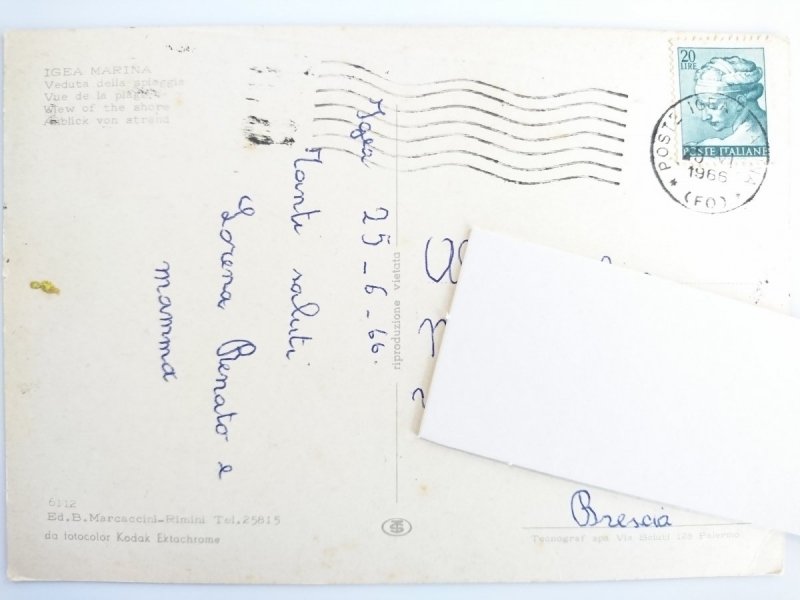 IGEA MARINA
Veduta della spiaggia
Vue de la plage
View of the shore
Anblick von strand
20
LIRE
POSTE ITALIANE
POSTE IGEA
1966
(FO)
Igea 25-6-66.
Tanti saluti
Lorena Renato e
mamma
riproduzione vietata
Brescia
6112
Ed.B.Marcaccini-Rimini Tel.25815
da fotocolor Kodak Ektachrome
Tecnograf spa Via 128 Palermo